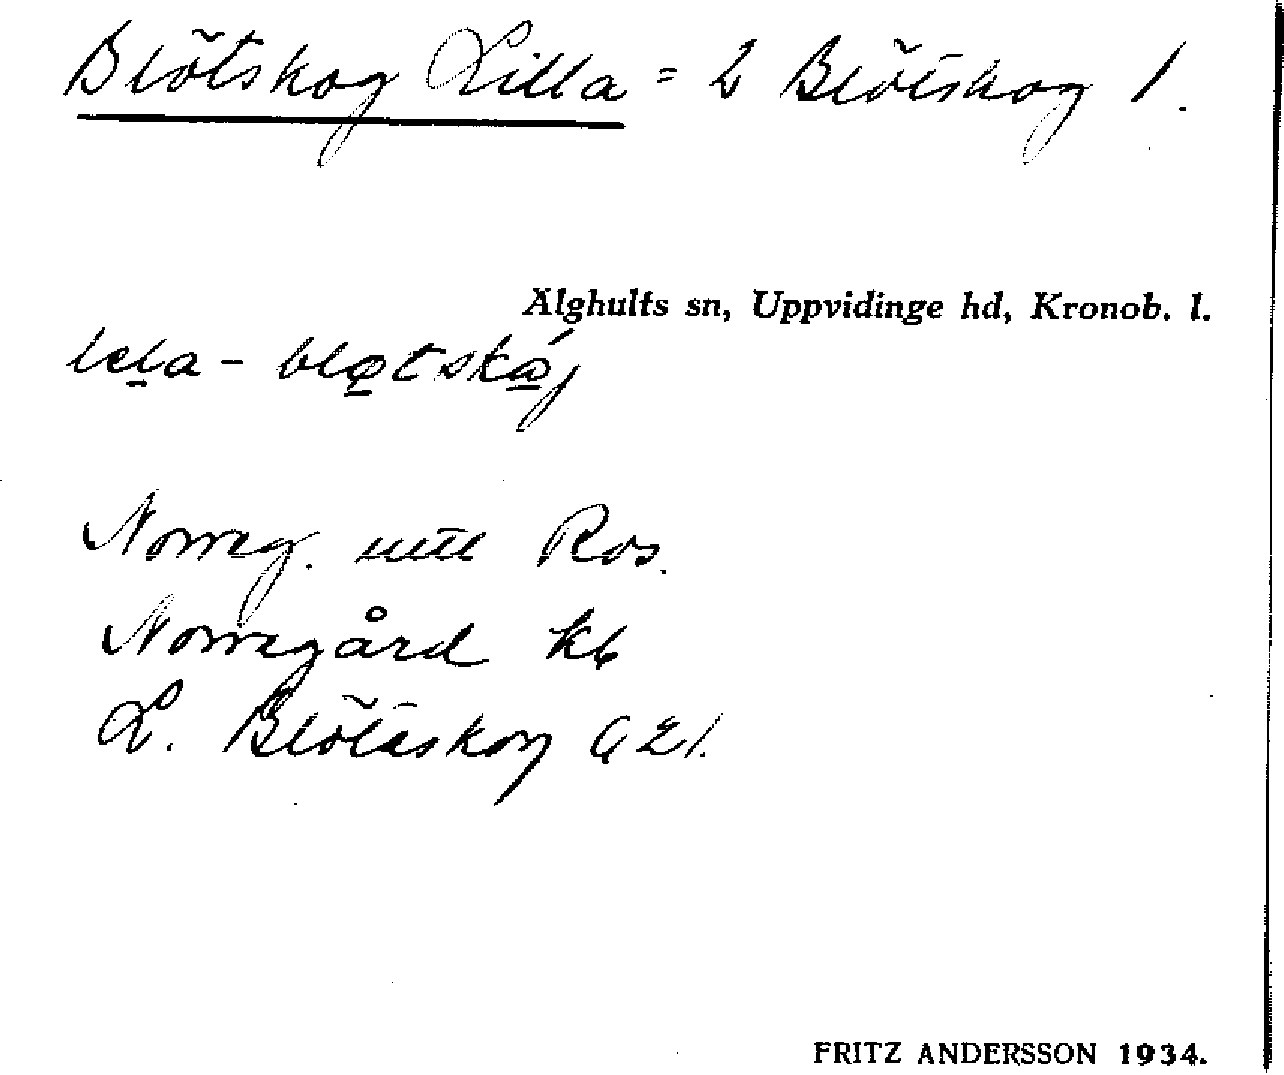 Blötskog Lilla = L Blötskog 1.
Älghults sn, Uppvidinge hd, Kronob. l.
Norreg. utt Ros.
Norregård kb
L. Blötåskog G 21.
FRITZ ANDERSSON 1934.